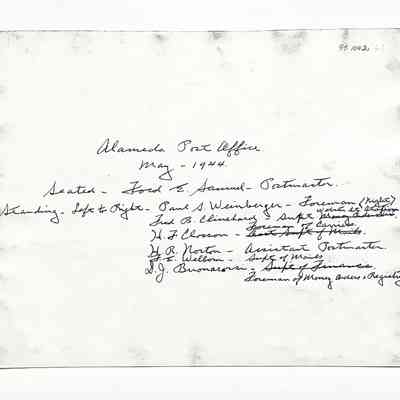 Alameda Post Office
May - 1944
Seated - Ford E. Samuel - Postmaster.
Standing - Left to Right - Paul S. Weinberger - Foreman (Night)
Fred B. - Supt
Foreman of Carriers
H. F. Closson - Asst Supt of Mails.
H. R. Norton - Assistant Postmaster
F. E. Wellborn - Supt of Mails
S. J. Buonacorsi - Supt of Finance
Foreman of Money Orders & Registry